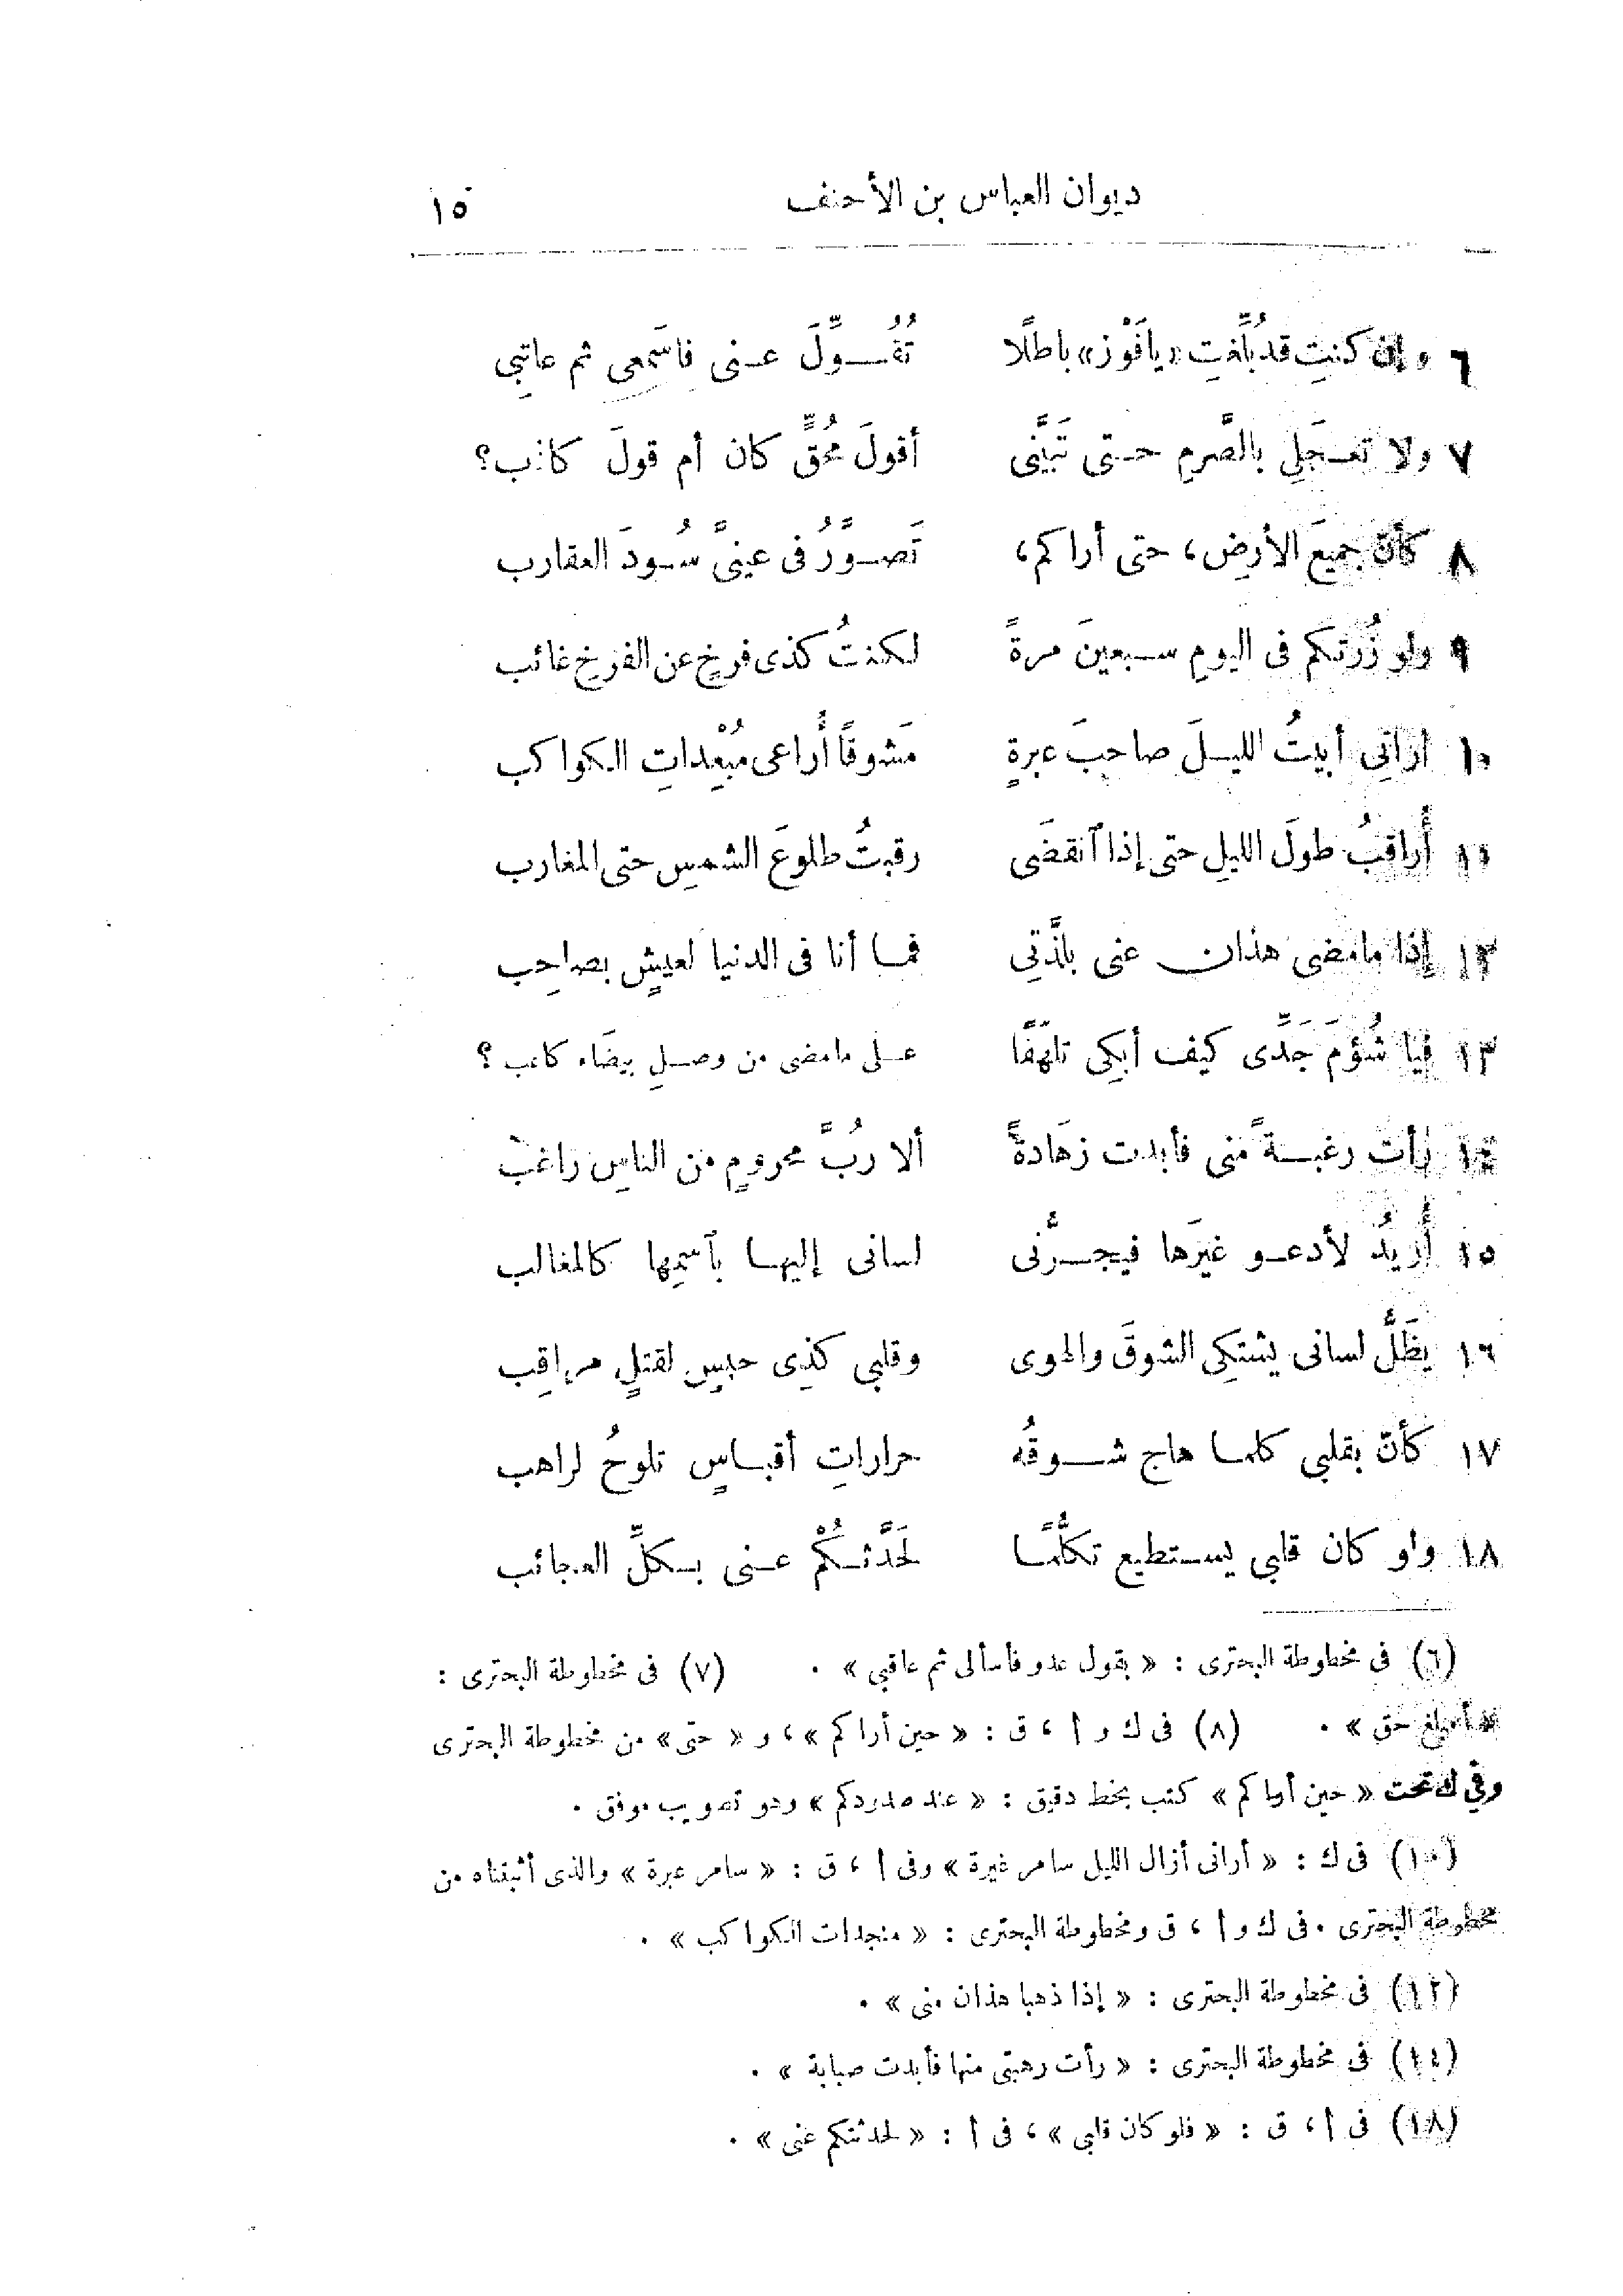 ديوان العباس بن الأحنف ١٥
٦ وإن كنتِ قد بُلِّغتِ «يا فَوْز» باطلًا تُقُـوِّلَ عـنى فاسَمعى ثم عاتبِى
٧ ولا تعـجَلِى بالصَّرمِ حـتى تَبيَّنى أقولَ مُحقٍّ كان أم قولَ كاذب؟
٨ كأنّ جميَع الأرضِ، حتى أراكم، تَصـوَّرُ فى عينىَّ سُـودَ العقارب
٩ ولو زُرتكم فى اليومِ سـبعينَ مرةً لكنتُ كذى فرخٍ عن الفرخِ غائب
١٠ أرانِى أبيتُ الليـلَ صاحبَ عبرةٍ مَشوقًا أُراعى مُبْعِداتِ الكواكب
١١ أُراقبُ طولَ الليلِ حتى إذا ٱنقضَى رقبتُ طلوعَ الشمسِ حتى المغارب
١٢ إذا ما مضى هذان عنى بلذَّتِى فمـا أنا فى الدنيا لعيشٍ بصاحِب
١٣ فيا شُؤمَ جَدِّى كيف أبكِى تلهّفًا عـلى ما مضى من وصـلِ بيضَاء كاعب؟
١٤ رأت رغبـةً منى فأبدت زهَادةً ألا رُبَّ محرومٍ من الناسِ راغبْ
١٥ أُريدُ لأدعـو غيَرها فيجـرُّنى لسانى إليهـا بٱسمِها كالمغالب
١٦ يظَلُّ لسانى يشتكِى الشوقَ والهوى وقلبي كذِى حبسٍ لقتلٍ مراقِب
١٧ كأنّ بقلبي كلمـا هاج شـوقُه حراراتِ أقبـاسٍ تلوحُ لراهب
١٨ ولو كان قلبى يسـتطيع تكلُّمًـا لَحَدَّثـكُمْ عـنى بـكلِّ العجائب
(٦) فى مخطوطة البحترى : « بقول عدو فاسألى ثم عاقبي » . (٧) فى مخطوطة البحترى :
حق » . (٨) فى ك و ا ، ق : « حين أراكم » ، و « حتى » من مخطوطة البحترى
وفي ك تحت « حين أراكم » كتب بخط دقيق : « عند صدودكم » وهو تصويب موفق .
(١٠) فى ك : « أرانى أزال الليل سامر غيرة » وفى ا ، ق : « سامر عبرة » والذى أثبتناه من
مخطوطة البحترى . فى ك و ا ، ق ومخطوطة البحترى : « منجدات الكواكب » .
(١٢) فى مخطوطة البحترى : « إذا ذهبا هذان منى » .
(١٤) فى مخطوطة البحترى : « رأت رهبتى منها فأبدت صبابة » .
(١٨) فى ا ، ق : « فلو كان قلبي » ، فى ا : « لحدثتكم عنى » .